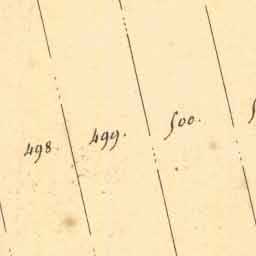 498.
499.
500.